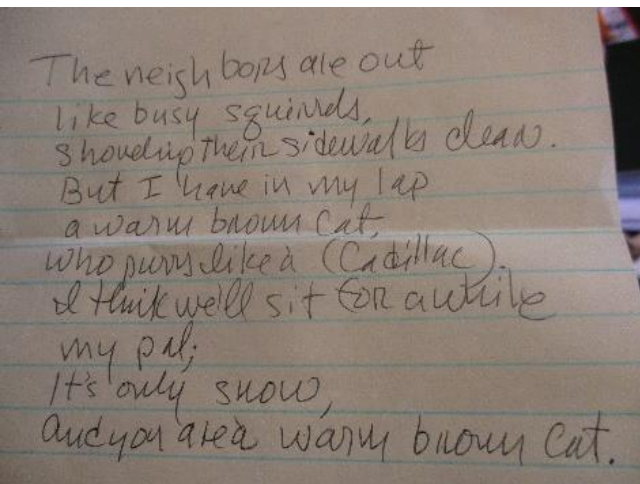 The neighbors are out
like busy squirrels,
shoveling their sidewalks clean.
But I have in my lap
a warm brown cat,
who purrs like a (Cadillac).
I think we'll sit for awhile
my pal;
It's only snow,
and you are a warm brown cat.